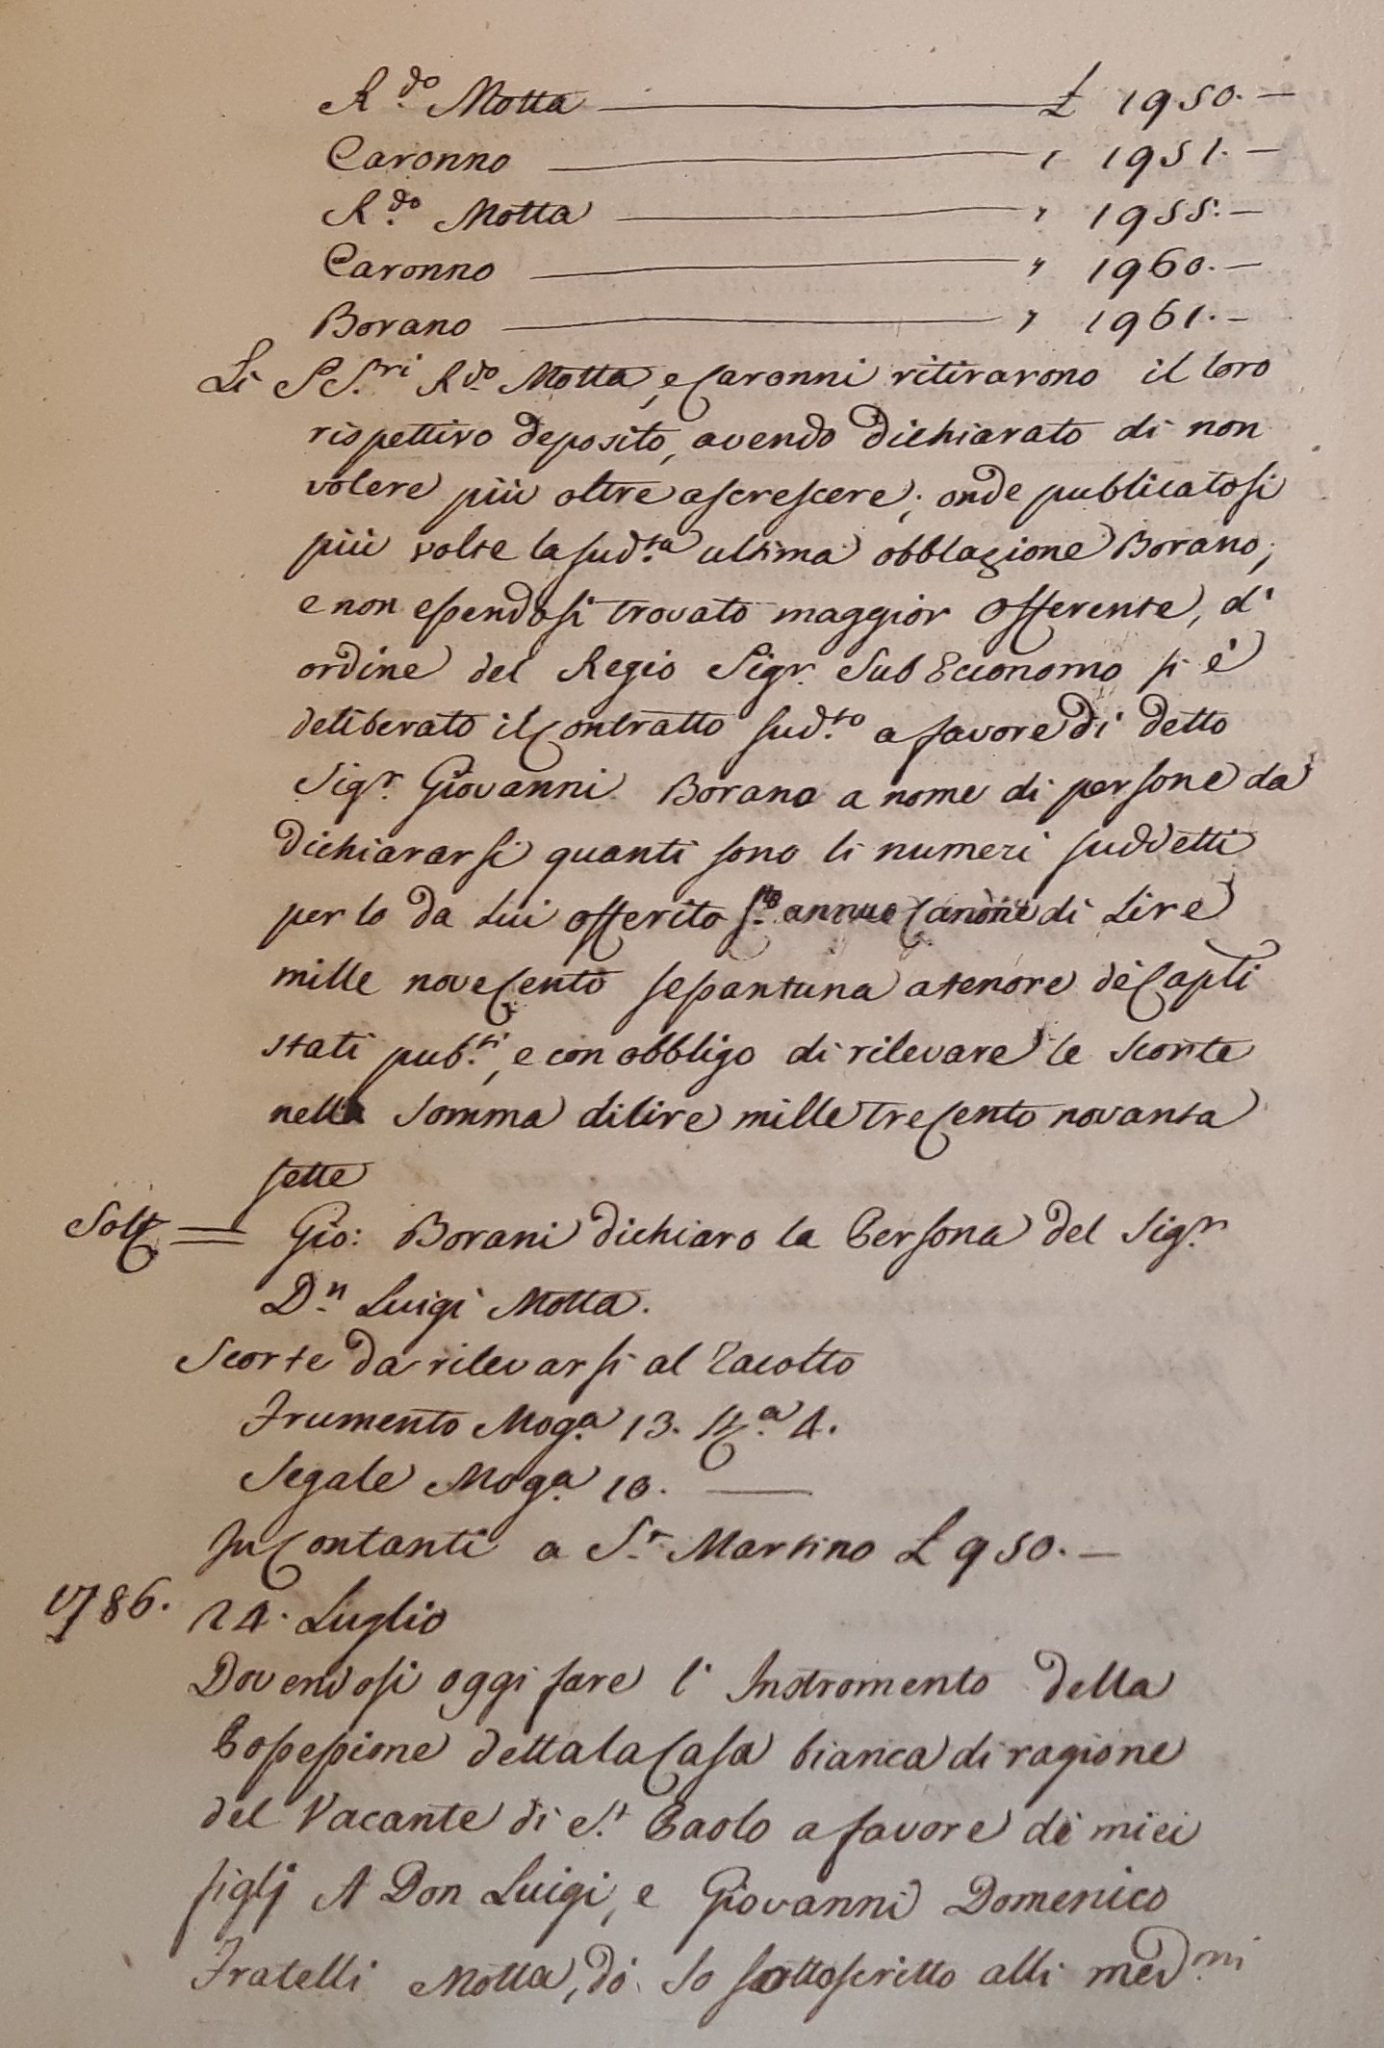 R.do Motta £ 1950.—
Caronno " 1951.—
R.do Motta " 1955.—
Caronno " 1960.—
Borano " 1961.—
Li SS.ri R.do Motta, e Caronni ritirarono il loro
rispettivo deposito, avendo dichiarato di non
volere più oltre ascrescere; onde publicatosi
più volte la sud.ta ultima obblazione Borano;
e non essendosi trovato maggior offerente, d'
ordine del Regio Sig.r Sub Economo si è
deliberato il Contratto sud.to a favore di detto
Sig.r Giovanni Borano a nome di persone da
dichiararsi quanti sono li numeri suddetti
per lo da Lui offerito s.to annuo Canone di Lire
mille novecento sessantuna a tenore de Capli
stati pub.ti, e con obbligo di rilevare le scorte
nella somma di lire mille trecento novanta
sette
Sott. = Gio: Borani dichiaro la Persona del Sig.r
D.n Luigi Motta.
Scorte da rilevarsi al Racolto
Frumento Mog.a 13. St.a 4.
Segale Mog.a 10. —
In Contanti a S.t Martino £ 950.—
1786. 24. Luglio
Dovendosi oggi fare l' Instromento della
Possessione detta la Casa bianca di ragione
del Vacante di S.t Paolo a favore de miei
figlj A Don Luigi, e Giovanni Domenico
Fratelli Motta, do Io sottoscritto alli med.mi